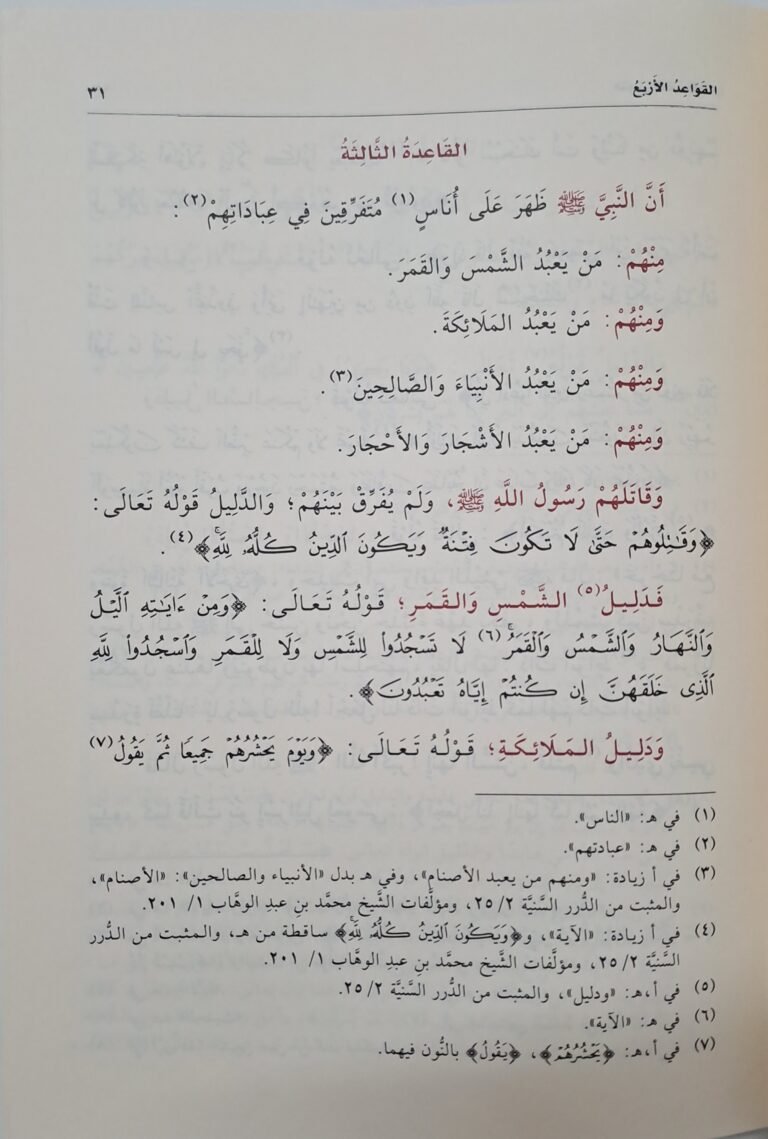 القَوَاعِدُ الأَرْبَعُ ٣١
القَاعِدَةُ الثَّالِثَةُ
أَنَّ النَّبِيَّ ﷺ ظَهَرَ عَلَى أُنَاسٍ(١) مُتَفَرِّقِينَ فِي عِبَادَاتِهِمْ(٢):
مِنْهُمْ: مَنْ يَعْبُدُ الشَّمْسَ وَالقَمَرَ.
وَمِنْهُمْ: مَنْ يَعْبُدُ المَلَائِكَةَ.
وَمِنْهُمْ: مَنْ يَعْبُدُ الأَنْبِيَاءَ وَالصَّالِحِينَ(٣).
وَمِنْهُمْ: مَنْ يَعْبُدُ الأَشْجَارَ وَالأَحْجَارَ.
وَقَاتَلَهُمْ رَسُولُ اللَّهِ ﷺ، وَلَمْ يُفَرِّقْ بَيْنَهُمْ؛ وَالدَّلِيلُ قَوْلُهُ تَعَالَى:
﴿وَقَٰتِلُوهُمْ حَتَّىٰ لَا تَكُونَ فِتْنَةٌ وَيَكُونَ الدِّينُ كُلُّهُۥ لِلَّهِۚ﴾(٤).
فَدَلِيلُ(٥) الشَّمْسِ وَالقَمَرِ؛ قَوْلُهُ تَعَالَى: ﴿وَمِنْ ءَايَٰتِهِ الَّيْلُ
وَالنَّهَارُ وَالشَّمْسُ وَالْقَمَرُۚ(٦) لَا تَسْجُدُوا۟ لِلشَّمْسِ وَلَا لِلْقَمَرِ وَاسْجُدُوا۟ لِلَّهِ
الَّذِى خَلَقَهُنَّ إِن كُنتُمْ إِيَّاهُ تَعْبُدُونَ﴾.
وَدَلِيلُ المَلَائِكَةِ؛ قَوْلُهُ تَعَالَى: ﴿وَيَوْمَ يَحْشُرُهُمْ جَمِيعًا ثُمَّ يَقُولُ(٧)
(١) في هـ: «الناس».
(٢) في هـ: «عبادتهم».
(٣) في أ زيادة: «ومنهم من يعبد الأصنام»، وفي هـ بدل «الأنبياء والصالحين»: «الأصنام»،
والمثبت من الدُّرر السَّنيَّة ٢/ ٢٥، ومؤلَّفات الشَّيخ محمَّد بنِ عبدِ الوهَّاب ١/ ٢٠١.
(٤) في أ زيادة: «الآية»، و﴿وَيَكُونَ الدِّينُ كُلُّهُۥ لِلَّهِۚ﴾ ساقطة من هـ، والمثبت من الدُّرر
السَّنيَّة ٢/ ٢٥، ومؤلَّفات الشَّيخ محمَّد بنِ عبدِ الوهاب ١/ ٢٠١.
(٥) في أ،هـ: «ودليل»، والمثبت من الدُّرر السَّنيَّة ٢/ ٢٥.
(٦) في هـ: «الآية».
(٧) في أ،هـ: ﴿يَحْشُرُهُمْ﴾، ﴿يَقُولُ﴾ بالنُّون فيهما.